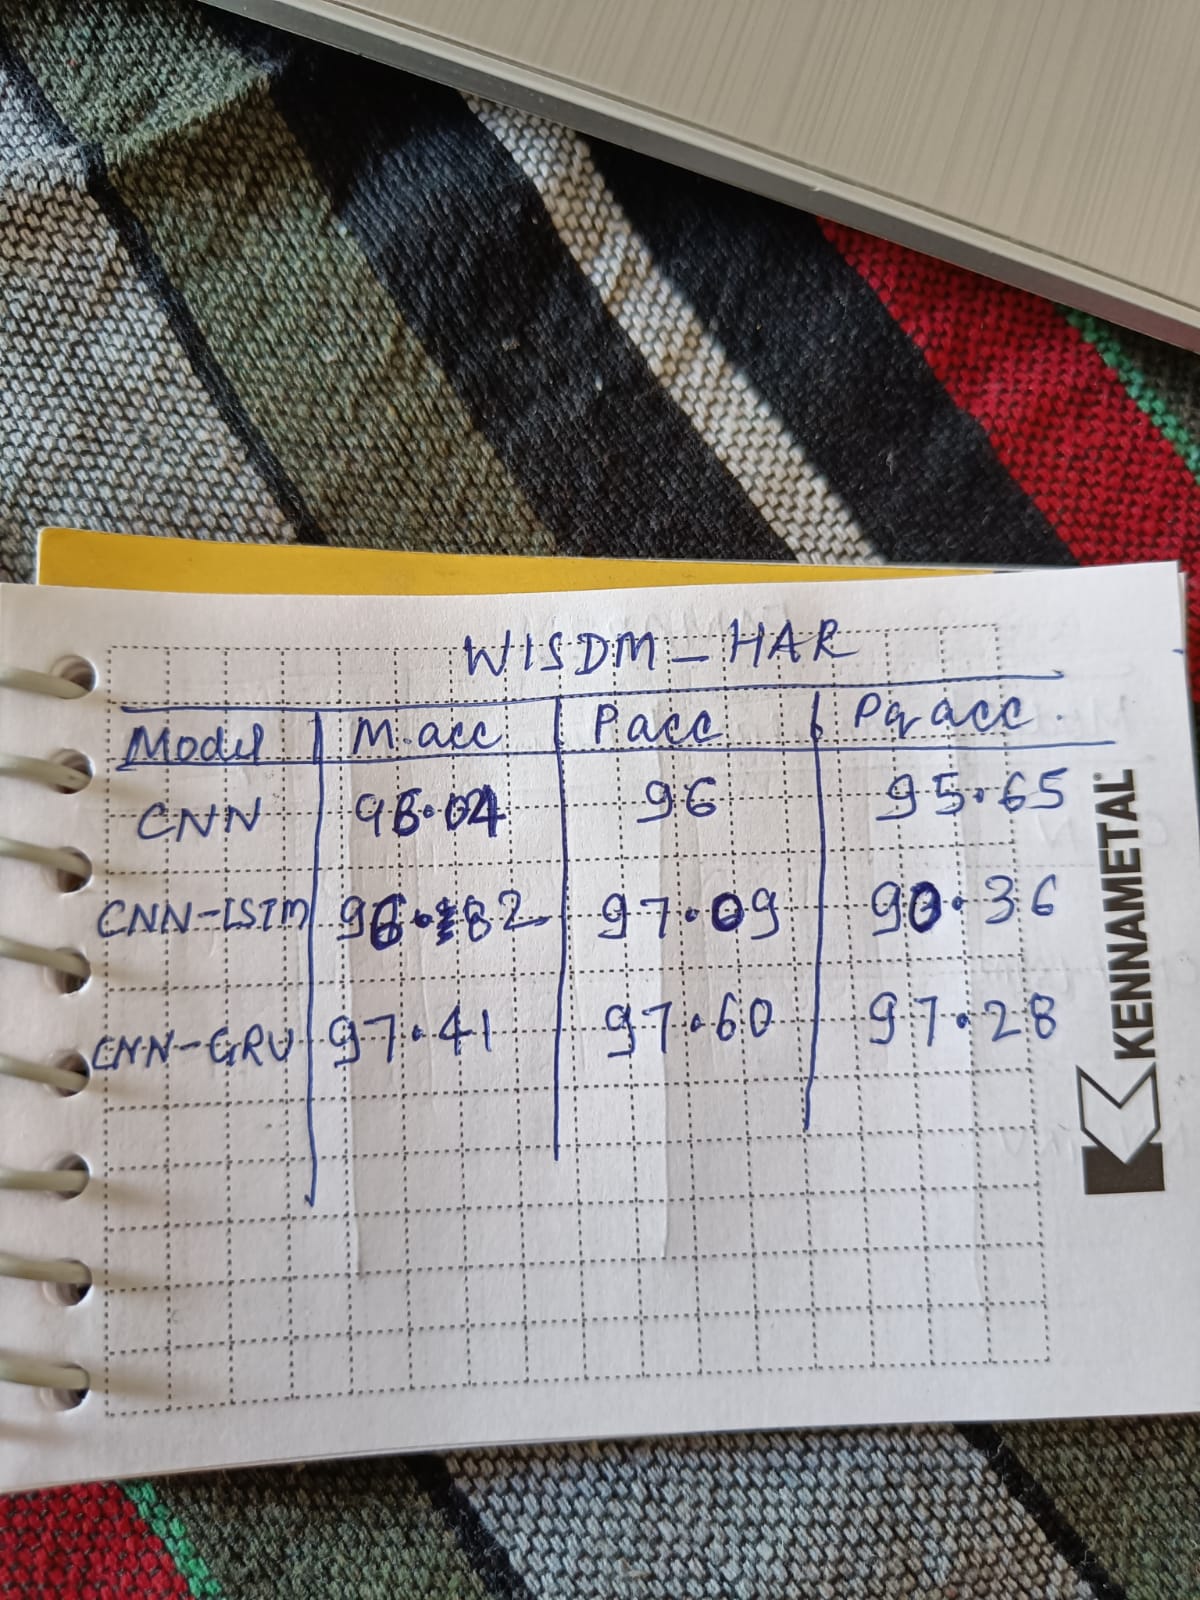 WISDM_HAR
Model M.acc Pacc Pq acc.
CNN 96.04 96 95.65
CNN-LSTM 96.82 97.09 90.36
CNN-GRU 97.41 97.60 97.28
KENNAMETAL